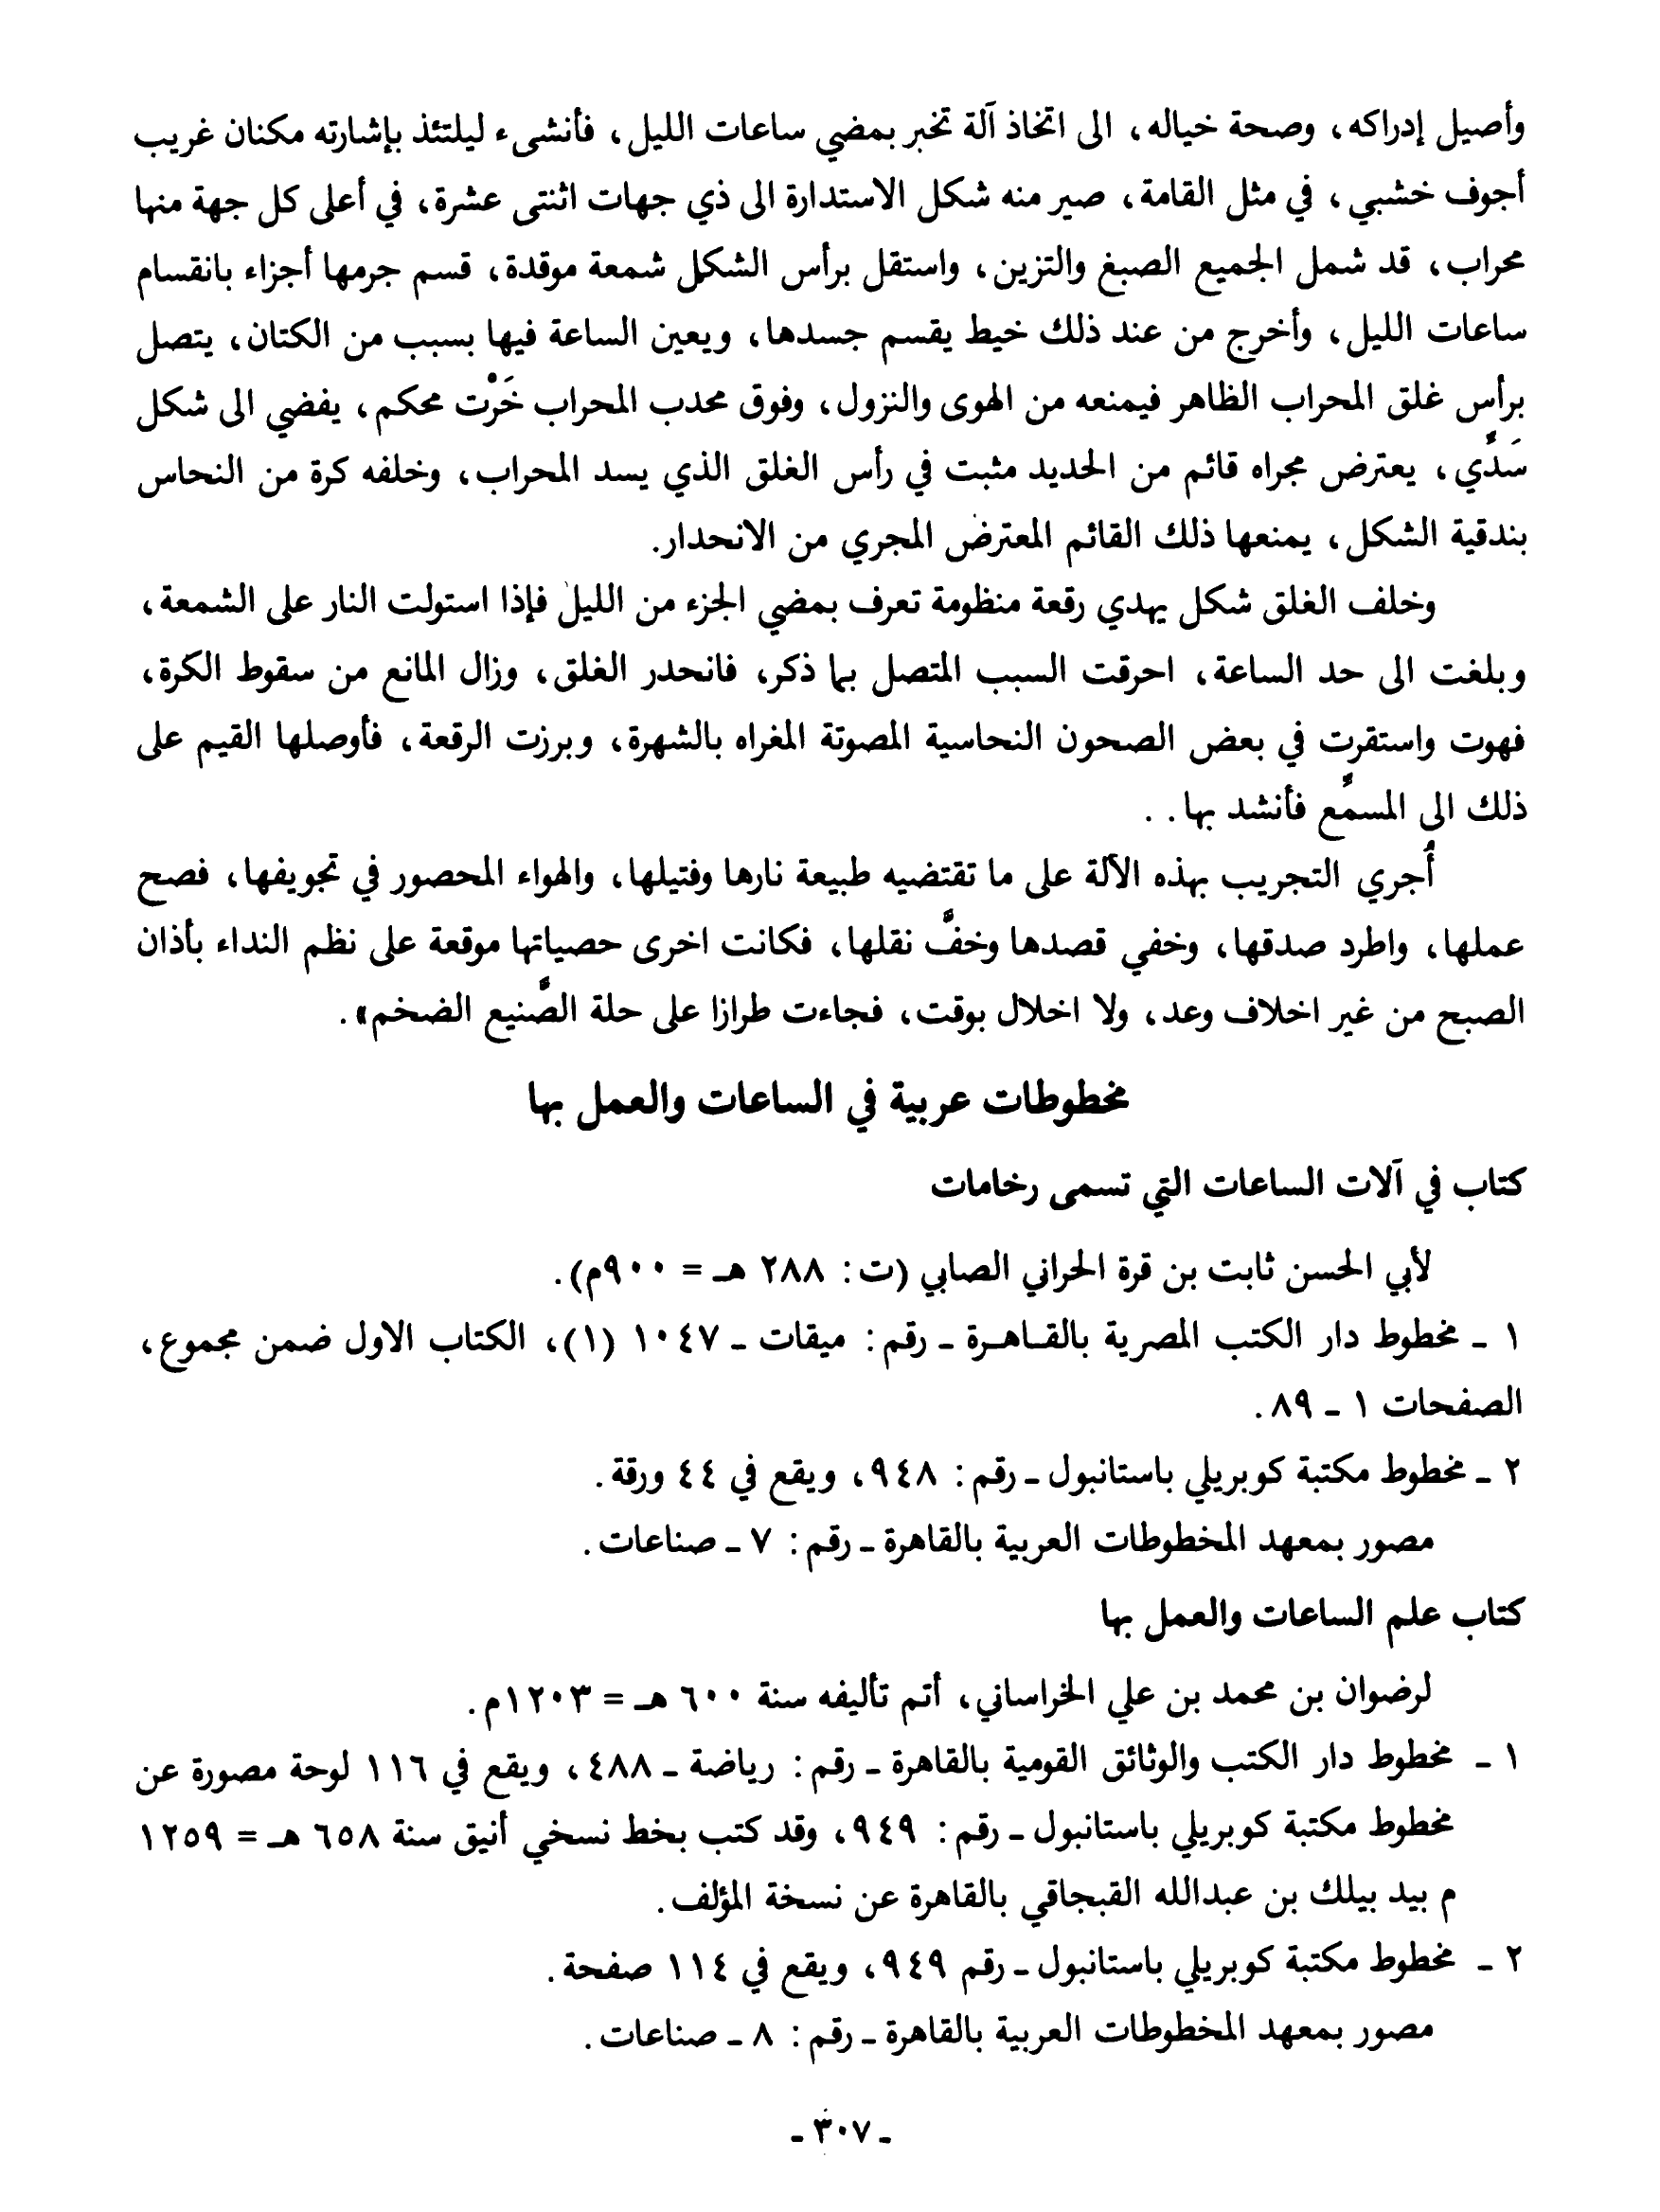 وأصيل إدراكه، وصحة خياله، الى اتخاذ آلة تخبر بمضي ساعات الليل، فأنشىء ليلتئذ بإشارته مكنان غريب
أجوف خشبي، في مثل القامة، صير منه شكل الاستدارة الى ذي جهات اثنتى عشرة، في أعلى كل جهة منها
محراب، قد شمل الجميع الصبغ والتزين، واستقل برأس الشكل شمعة موقدة، قسم جرمها أجزاء بانقسام
ساعات الليل، وأخرج من عند ذلك خيط يقسم جسدها، ويعين الساعة فيها بسبب من الكتان، يتصل
برأس غلق المحراب الظاهر فيمنعه من الهوى والنزول، وفوق محدب المحراب خَرْت محكم، يفضي الى شكل
سَدِّي، يعترض مجراه قائم من الحديد مثبت في رأس الغلق الذي يسد المحراب، وخلفه كرة من النحاس
بندقية الشكل، يمنعها ذلك القائم المعترض المجري من الانحدار.
وخلف الغلق شكل يهدي رقعة منظومة تعرف بمضي الجزء من الليل فإذا استولت النار على الشمعة،
وبلغت الى حد الساعة، احرقت السبب المتصل بما ذكر، فانحدر الغلق، وزال المانع من سقوط الكرة،
فهوت واستقرت في بعض الصحون النحاسية المصوتة المغراه بالشهرة، وبرزت الرقعة، فأوصلها القيم على
ذلك الى المسمِّع فأنشد بها..
أُجري التجريب بهذه الآلة على ما تقتضيه طبيعة نارها وفتيلها، والهواء المحصور في تجويفها، فصح
عملها، واطرد صدقها، وخفي قصدها وخفَّ نقلها، فكانت اخرى حصياتها موقعة على نظم النداء بأذان
الصبح من غير اخلاف وعد، ولا اخلال بوقت، فجاءت طرازا على حلة الصَّنيع الضخم».
مخطوطات عربية في الساعات والعمل بها
كتاب في آلات الساعات التي تسمى رخامات
لأبي الحسن ثابت بن قرة الحراني الصابي (ت: ٢٨٨ هـ = ٩٠٠م).
١ ـ مخطوط دار الكتب المصرية بالقـاهـرة ـ رقم: ميقات ـ ١٠٤٧ (١)، الكتاب الاول ضمن مجموع،
الصفحات ١ ـ ٨٩.
٢ ـ مخطوط مكتبة كوبريلي باستانبول ـ رقم: ٩٤٨، ويقع في ٤٤ ورقة.
مصور بمعهد المخطوطات العربية بالقاهرة ـ رقم: ٧ ـ صناعات.
كتاب علم الساعات والعمل بها
لرضوان بن محمد بن علي الخراساني، أتم تأليفه سنة ٦٠٠ هـ = ١٢٠٣م.
١ ـ مخطوط دار الكتب والوثائق القومية بالقاهرة ـ رقم: رياضة ـ ٤٨٨، ويقع في ١١٦ لوحة مصورة عن
مخطوط مكتبة كوبريلي باستانبول ـ رقم: ٩٤٩، وقد كتب بخط نسخي أنيق سنة ٦٥٨ هـ = ١٢٥٩
م بيد بيلك بن عبدالله القبجاقي بالقاهرة عن نسخة المؤلف.
٢ ـ مخطوط مكتبة كوبريلي باستانبول ـ رقم ٩٤٩، ويقع في ١١٤ صفحة.
مصور بمعهد المخطوطات العربية بالقاهرة ـ رقم: ٨ ـ صناعات.
ـ ٣٠٧ ـ